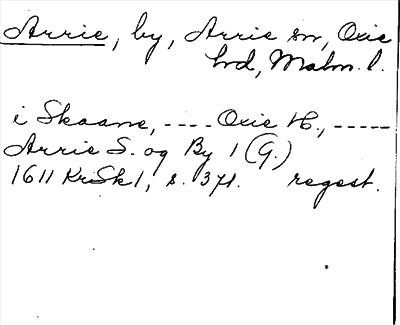 Arrie, by, Arrie sn, Oxie
hrd, Malm. l.
i Skaane, ---- Oxie H., -----
Arrie S. og By 1 (G.)
1611 KrSk1, s. 371. regest.